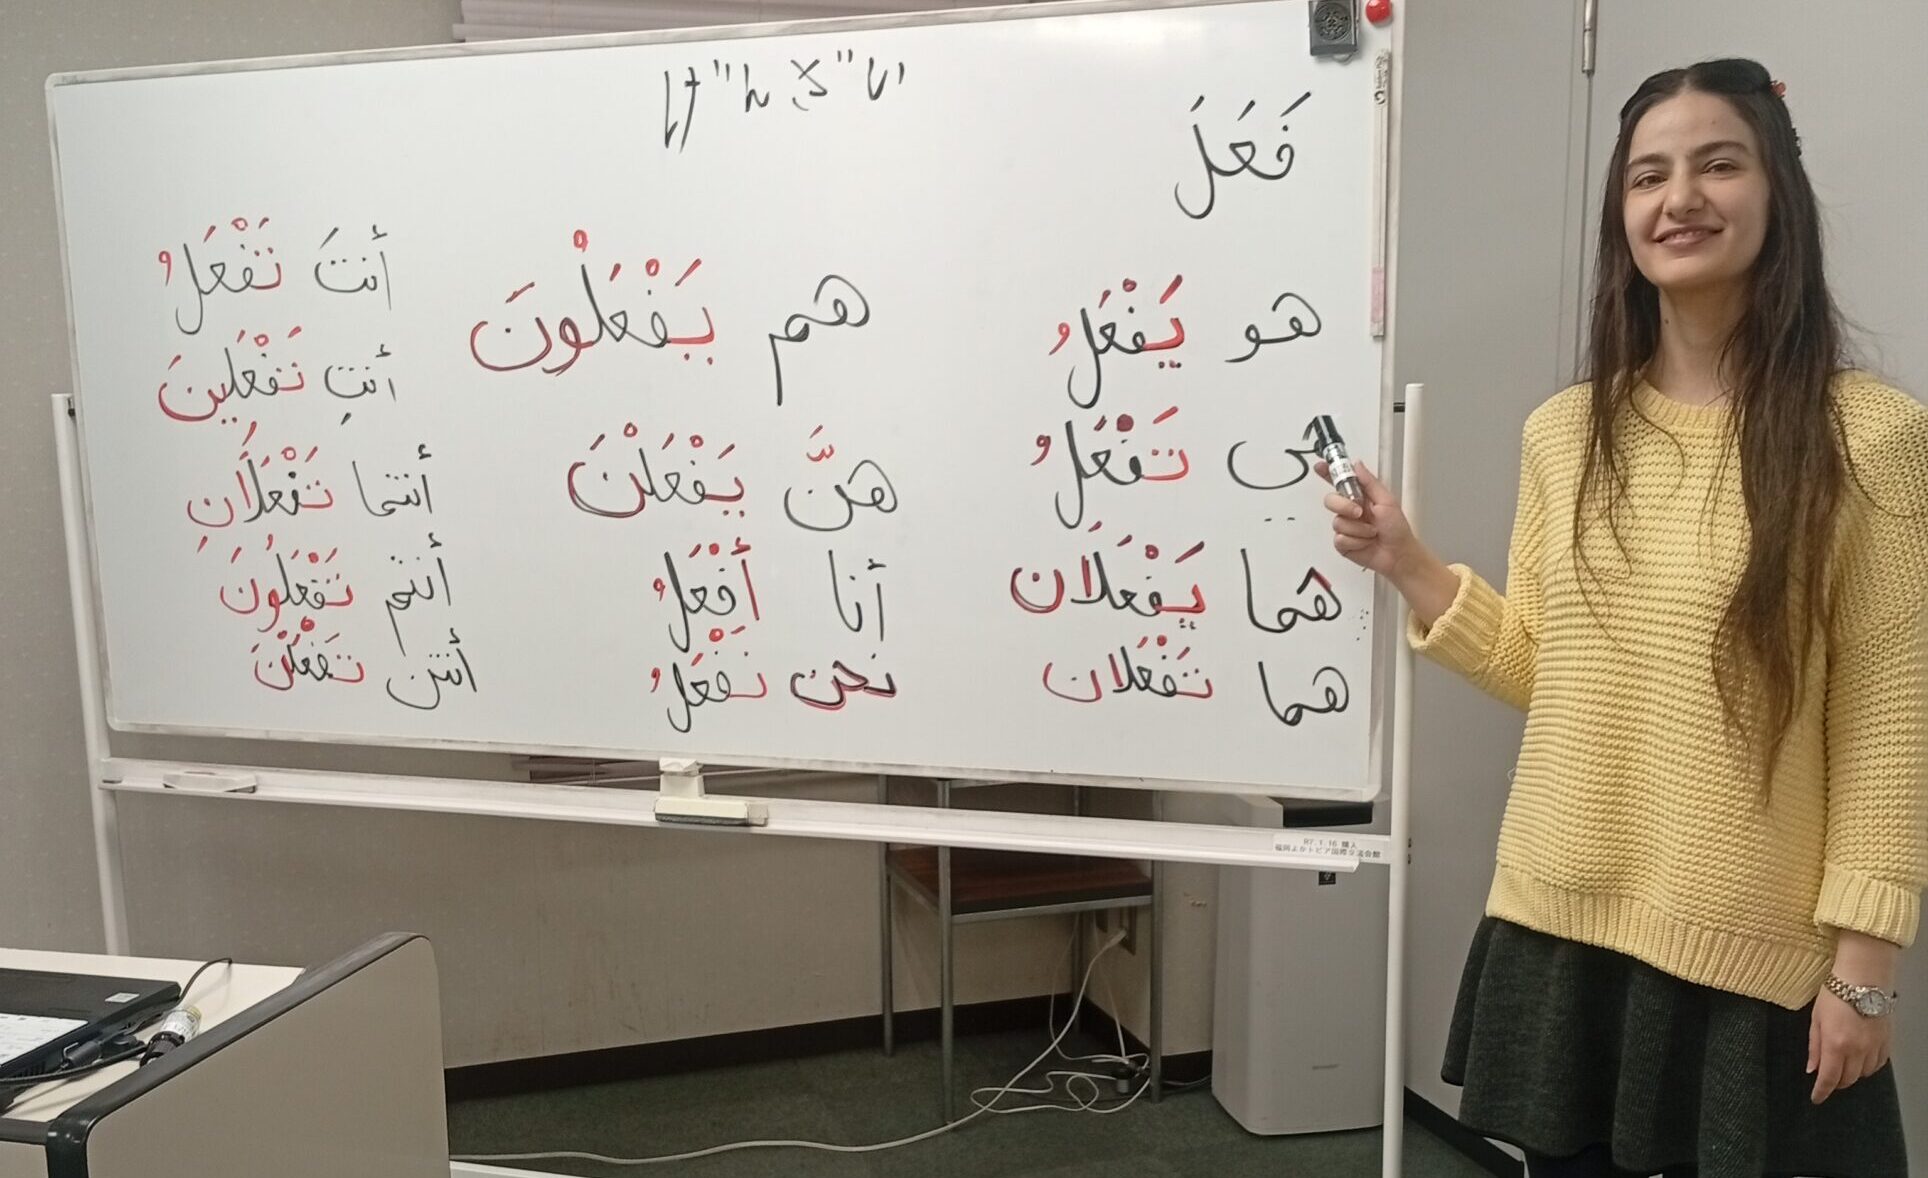 فَعَلَ
هو يَفْعَلُ
هي تَفْعَلُ
هما يَفْعَلَان
هما تَفْعَلَان
هم يَفْعَلْونَ
هنَّ يَفْعَلْنَ
أنا أَفْعَلُ
نحن نَفْعَلُ
أنتَ تَفْعَلُ
أنتِ تَفْعَلينَ
أنتما تَفْعَلَانِ
أنتم تَفْعَلُونَ
أنتن تَفْعَلْنَ
R7.1.16 購入
福岡よかトピア国際交流会館